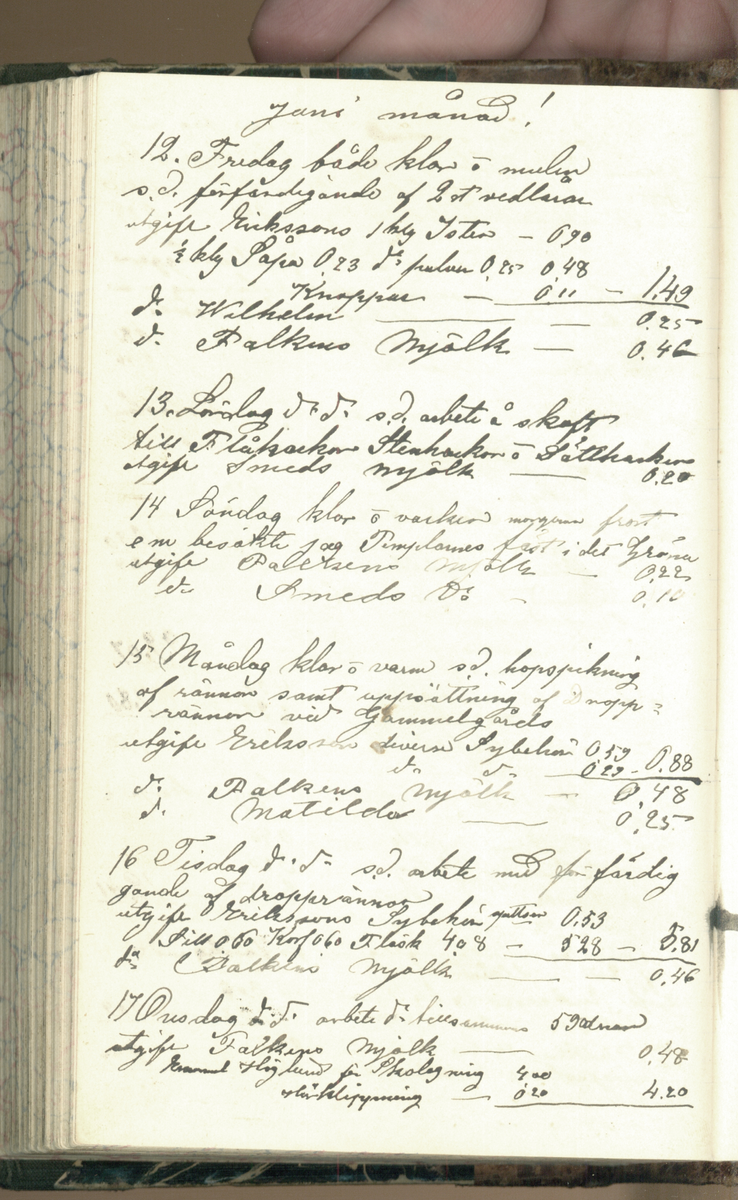 Juni månad!
12. Fredag både klar o mulen
s.d. förfärdigande af 2 st vedlårar
utgift Erikssons 1 kg Ister — 0 90
½ kg Såpa 0,23 do pulver 0,25 0,48
Knappar — 0 11 — 1.49
do Wilhelm — 0.25
do Falkens Mjölk — 0.46
13. Lördag do do s.d. arbete å skaft
till Flåhackor Stenhackor o
utgift Smeds Mjölk — 0.20
14 Söndag klar o vacker morgonen frost
em besökte jag Templarnes fäst i det Gröna
utgift Falkens Mjölk — 0,22
do Smeds Do - 0,10
15 Måndag klar o varm s.d. hopspikning
af rännor samt uppsättning af Dropp=
rännor vid Gammelgårds
utgift Eriksson diverse Sybehör 0 59
do do — 0 29 - 0.88
do Falkens Mjölk — 0,48
do Matilda — 0,25
16 Tisdag do do s.d. arbete med förfärdig
gande af dropprännor
utgift Erikssons Sybehör 0,53
Sill 0 60 Korf 0 60 Fläsk 4 08 — 5 28 — 5.81
do Falkens Mjölk — 0,46
17 Onsdag do do arbete do tillsammans
utgift Falkens Mjölk — 0,48
Emanuel Höglund för Skolagning 4,00
Hårklippning — 0 20 4.20